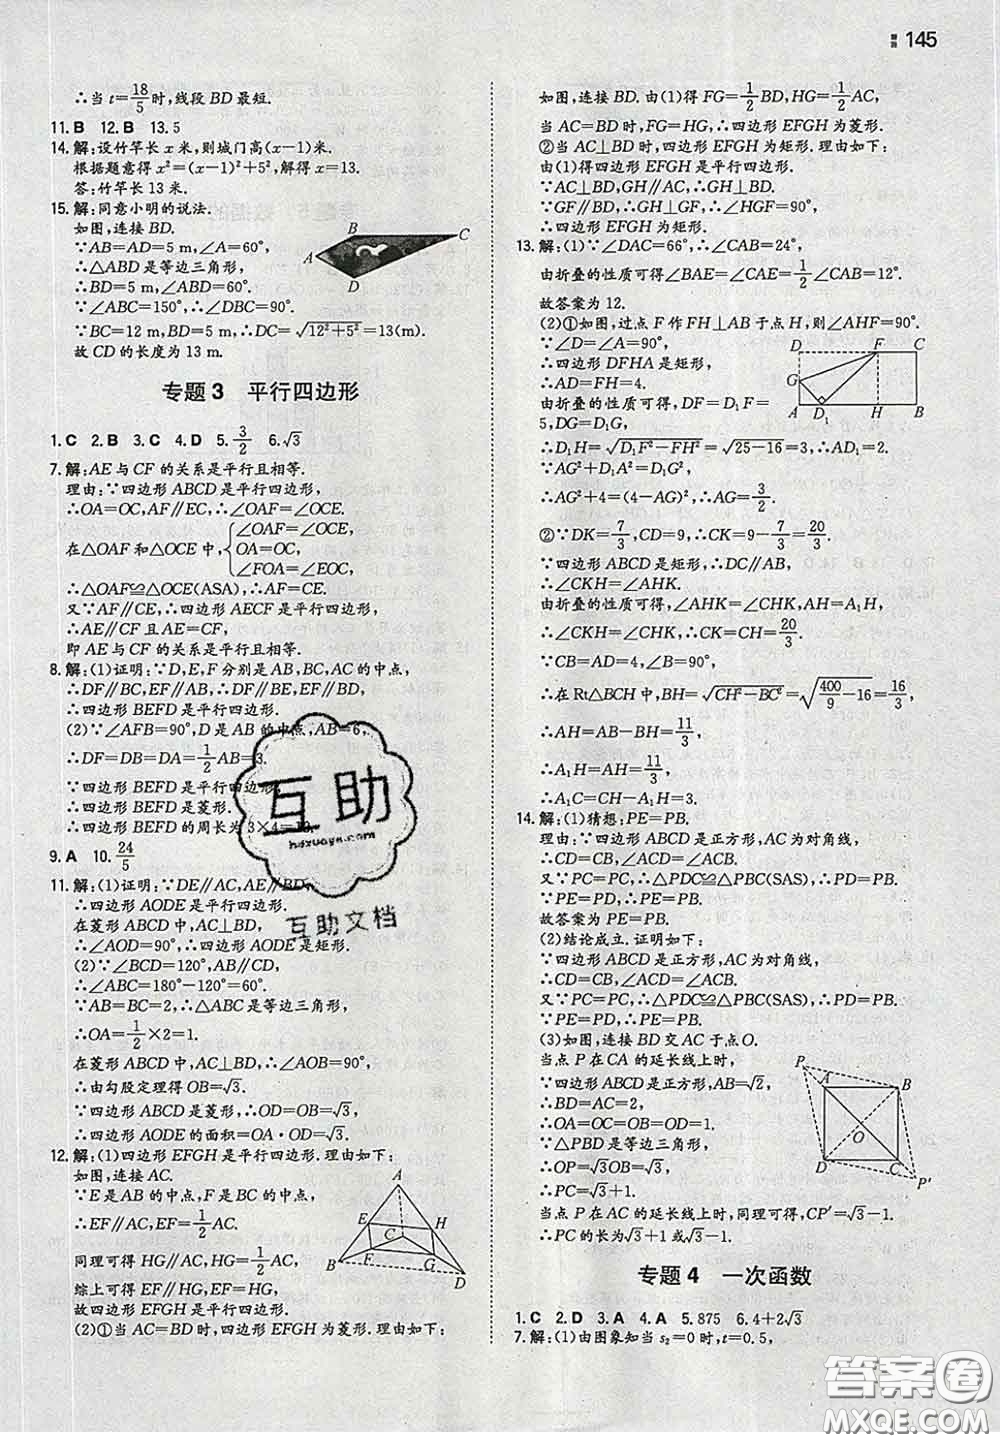 145
∴当 t=18/5时,线段 BD 最短.
11.B 12.B 13.5
14.解:设竹竿长 x 米,则城门高(x-1)米.
根据题意得 x²=(x-1)²+5²,解得 x=13.
答:竹竿长 13 米.
15.解:同意小明的说法.
如图,连接 BD.
∵AB=AD=5 m,∠A=60°,
∴△ABD 是等边三角形,
∴BD=5 m,∠ABD=60°.
∵∠ABC=150°,∴∠DBC=90°.
∵BC=12 m,BD=5 m,∴DC=√(12²+5²)=13(m).
故 CD 的长度为 13 m.
A B C D
专题 3 平行四边形
1.C 2.B 3.C 4.D 5.3/2 6.√3
7.解:AE 与 CF 的关系是平行且相等.
理由:∵四边形 ABCD 是平行四边形,
∴OA=OC,AF∥EC,∴∠OAF=∠OCE.
在△OAF 和△OCE 中,{∠OAF=∠OCE,
OA=OC,
∠FOA=∠EOC,
∴△OAF≌△OCE(ASA),∴AF=CE.
又∵AF∥CE,∴四边形 AECF 是平行四边形,
∴AE∥CF 且 AE=CF,
即 AE 与 CF 的关系是平行且相等.
8.解:(1)证明:∵D,E,F 分别是 AB,BC,AC 的中点,
∴DF∥BC,EF∥AB,∴DF∥BE,EF∥BD,
∴四边形 BEFD 是平行四边形.
(2)∵∠AFB=90°,D 是 AB 的中点,AB=6,
∴DF=DB=DA=1/2AB=3.
∵四边形 BEFD 是平行四边形,
∴四边形 BEFD 是菱形.
∴四边形 BEFD 的周长为 3×4=12.
9.A 10.24/5
11.解:(1)证明:∵DE∥AC,AE∥BD,
∴四边形 AODE 是平行四边形.
在菱形 ABCD 中,AC⊥BD,
∴∠AOD=90°,∴四边形 AODE 是矩形.
(2)∵∠BCD=120°,AB∥CD,
∴∠ABC=180°-120°=60°.
∵AB=BC=2,∴△ABC 是等边三角形,
∴OA=1/2×2=1.
在菱形 ABCD 中,AC⊥BD,∴∠AOB=90°,
∴由勾股定理得 OB=√3.
∵四边形 ABCD 是菱形,∴OD=OB=√3,
∴四边形 AODE 的面积=OA·OD=√3.
12.解:(1)四边形 EFGH 是平行四边形.理由如下:
如图,连接 AC.
∵E 是 AB 的中点,F 是 BC 的中点,
∴EF∥AC,EF=1/2AC.
同理可得 HG∥AC,HG=1/2AC,
综上可得 HG∥EF,HG=EF,
故四边形 EFGH 是平行四边形.
(2)①当 AC=BD 时,四边形 EFGH 为菱形.理由如下:
A E H C B F G D
如图,连接 BD. 由(1)得 FG=1/2BD,HG=1/2AC,
当 AC=BD 时,FG=HG,∴四边形 EFGH 为菱形.
②当 AC⊥BD 时,四边形 EFGH 为矩形.理由如下:
由(1)得四边形 EFGH 是平行四边形.
∵AC⊥BD,GH∥AC,∴GH⊥BD.
∵GF∥BD,∴GH⊥GF,∴∠HGF=90°,
∴四边形 EFGH 为矩形.
13.解:(1)∵∠DAC=66°,∴∠CAB=24°,
由折叠的性质可得∠BAE=∠CAE=1/2∠CAB=12°.
故答案为 12.
(2)①如图,过点 F 作 FH⊥AB 于点 H,则∠AFH=90°.
∵∠D=∠A=90°,
∴四边形 DFHA 是矩形,
∴AD=FH=4.
由折叠的性质可得,DF=D₁F=
5,DG=D₁G,
D F C G A D₁ H B
∴D₁H=√(D₁F²-FH²)=√(25-16)=3,∴AD₁=2.
∵AG²+D₁A²=D₁G²,
∴AG²+4=(4-AG)²,∴AG=3/2.
②∵DK=7/3,CD=9,∴CK=9-7/3=20/3.
∵四边形 ABCD 是矩形,∴DC∥AB,
∴∠CKH=∠AHK.
由折叠的性质可得,∠AHK=∠CHK,AH=A₁H,
∴∠CKH=∠CHK,∴CK=CH=20/3.
∵CB=AD=4,∠B=90°,
∴在 Rt△BCH 中,BH=√(CH²-BC²)=√(400/9-16)=16/3,
∴AH=AB-BH=11/3,
∴A₁H=AH=11/3,
∴A₁C=CH-A₁H=3.
14.解:(1)猜想:PE=PB.
理由:∵四边形 ABCD 是正方形,AC 为对角线,
∴CD=CB,∠ACD=∠ACB.
又∵PC=PC,∴△PDC≌△PBC(SAS),∴PD=PB.
∵PE=PD,∴PE=PB.
故答案为 PE=PB.
(2)结论成立.证明如下:
∵四边形 ABCD 是正方形,AC 为对角线,
∴CD=CB,∠ACD=∠ACB.
又∵PC=PC,∴△PDC≌△PBC(SAS),∴PD=PB.
∵PE=PD,∴PE=PB.
(3)如图,连接 BD 交 AC 于点 O.
当点 P 在 CA 的延长线上时,
∵四边形 ABCD 是正方形,AB=√2,
∴BD=AC=2,
∴OA=OC=OB=OD=1.
∵△PBD 是等边三角形,
∴OP=√3OB=√3,
∴PC=√3+1.
P A B O D C P'
当点 P 在 AC 的延长线上时,同理可得,CP'=√3-1.
∴PC 的长为√3+1 或√3-1.
专题 4 一次函数
1.C 2.D 3.A 4.A 5.875 6.4+2√3
7.解:(1)由图象知当 s₂=0 时,t=0.5,
互助
hdzuoye.com
互助文档
答案圈
MXQE.COM